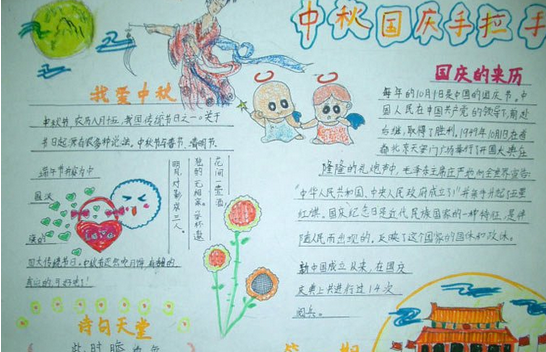 中秋国庆手拉手
我爱中秋
中秋节,农历八月十五,我国传统节日之一。关于
节日起源有很多种说法,中秋节与春节、清明节、
端午节并称为中
国汉
族的
四大传统节日。
花间一壶酒,
独酌无相亲。举杯邀
明月,对影成三人。
诗句天堂
此时瞻
国庆的来历
每年的10月1日是中国的国庆节。中
国人民在中国共产党的领导下,前赴
后继,取得了胜利。1949年10月1日在首
都北京天安门广场举行了开国大典,在
隆隆的礼炮声中,毛主席庄严的向全世界宣告
“中华人民共和国、中央人民政府成立了!”并亲手升起了五星
红旗。国庆纪念日是近代民族国家的一种特征,是伴
随人民而出现的,反映了这个国家的国体和政体。
新中国成立以来,在国庆
庆典上共进行过14次
阅兵。